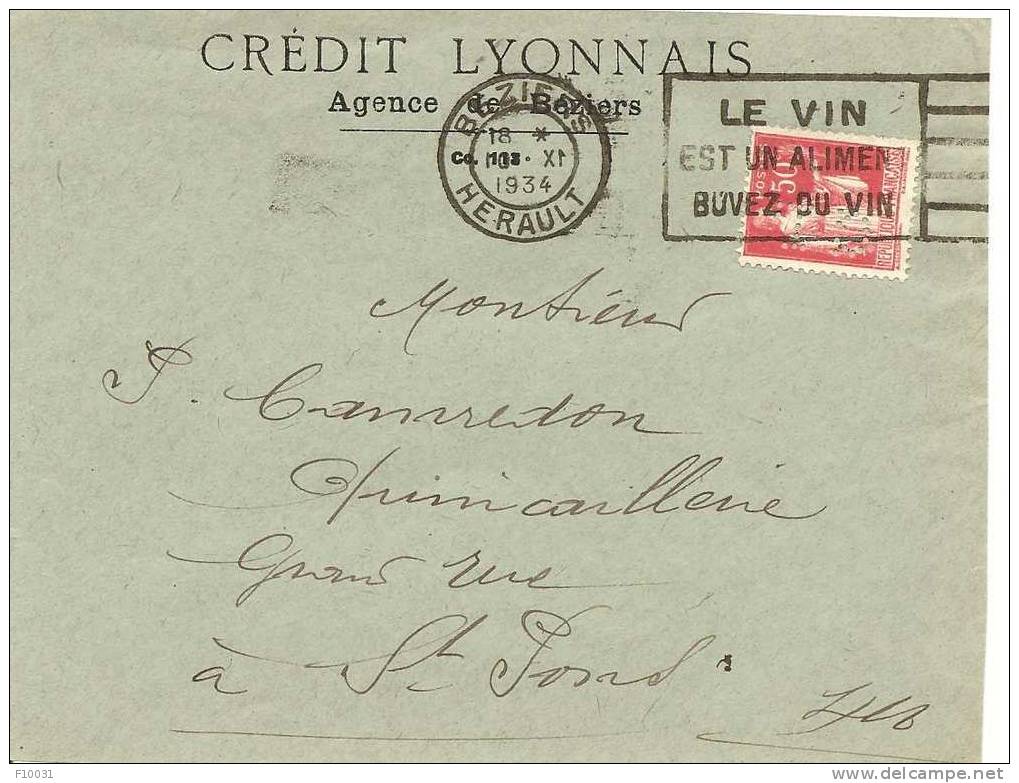 CRÉDIT LYONNAIS
Agence de Béziers
BEZIERS
18 *
XI
1934
HERAULT
LE VIN
EST UN ALIMEN
BUVEZ DU VIN
50
Monsieur
P. Camredon
Quincaillerie
Grand rue
à St Pons
F10031
www.delcampe.net